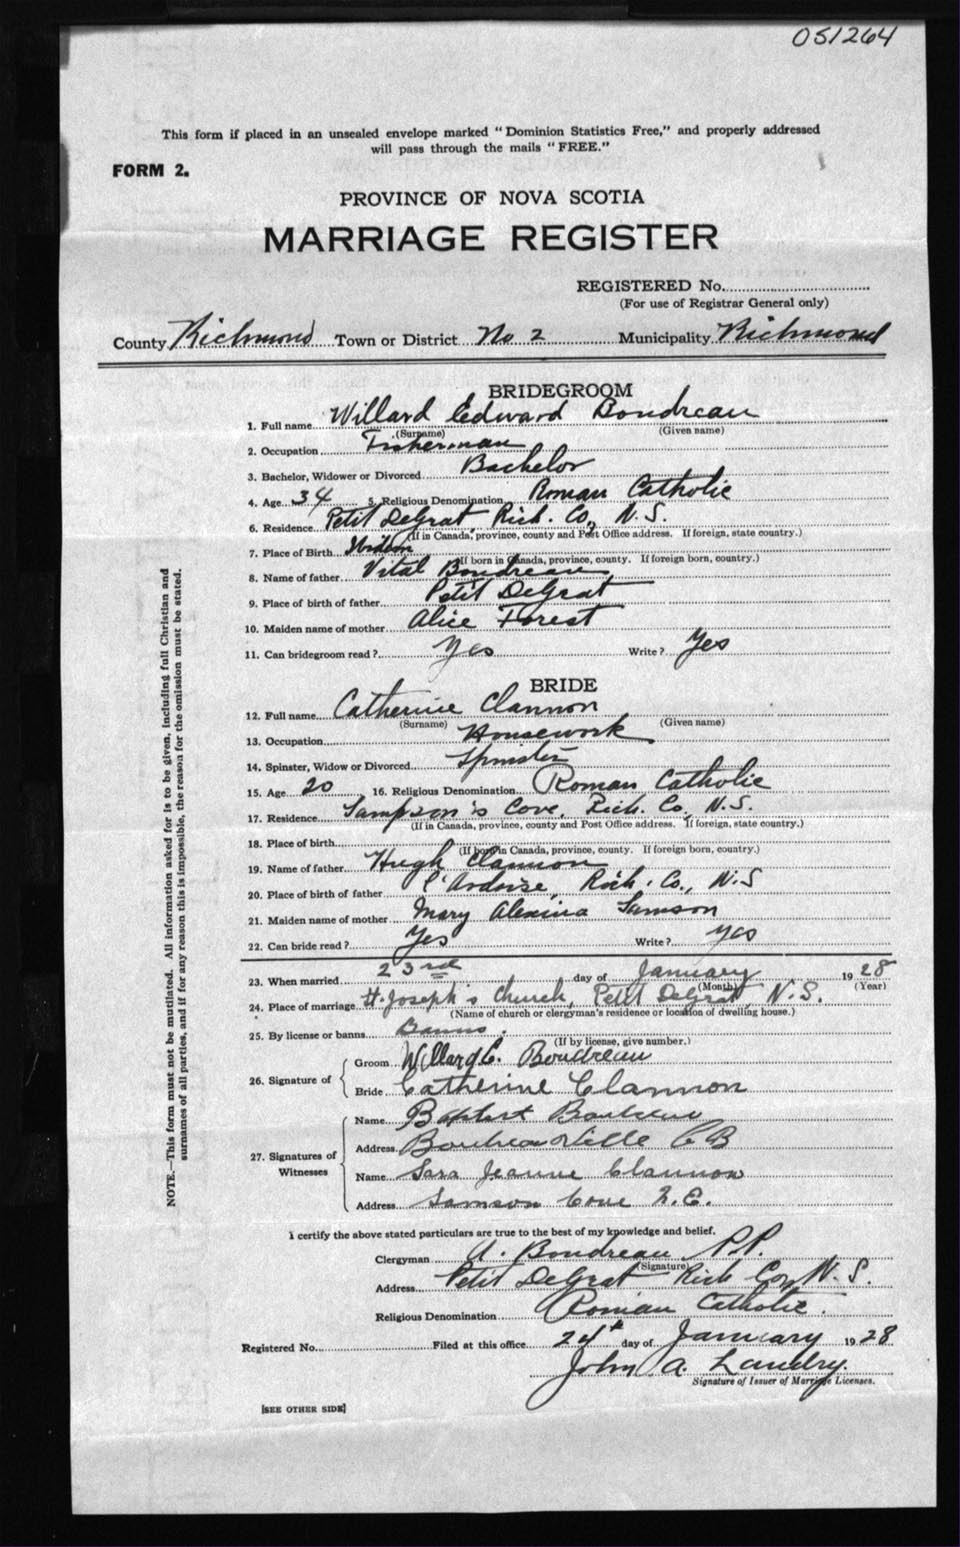 051264
This form if placed in an unsealed envelope marked "Dominion Statistics Free," and properly addressed
will pass through the mails "FREE."
FORM 2.
PROVINCE OF NOVA SCOTIA
MARRIAGE REGISTER
REGISTERED No.
(For use of Registrar General only)
County Richmond Town or District No 2 Municipality Richmond
BRIDEGROOM
1. Full name Willard Edward Boudreau
(Surname) (Given name)
2. Occupation Fisherman
3. Bachelor, Widower or Divorced Bachelor
4. Age 34 5. Religious Denomination Roman Catholic
6. Residence Petit DeGrat, Rich. Co, N.S.
(If in Canada, province, county and Post Office address. If foreign, state country.)
7. Place of Birth
(If born in Canada, province, county. If foreign born, country.)
8. Name of father Vital Boudreau
9. Place of birth of father Petit DeGrat
10. Maiden name of mother Alice Forest
11. Can bridegroom read? Yes Write? Yes
BRIDE
12. Full name Catherine Clannon
(Surname) (Given name)
13. Occupation Housework
14. Spinster, Widow or Divorced Spinster
15. Age 20 16. Religious Denomination Roman Catholic
17. Residence Sampson's Cove, Rich. Co, N.S.
(If in Canada, province, county and Post Office address. If foreign, state country.)
18. Place of birth
(If born in Canada, province, county. If foreign born, country.)
19. Name of father Hugh Clannon
20. Place of birth of father L'Ardoise, Rich. Co., N.S
21. Maiden name of mother Mary Alexina Samson
22. Can bride read? Yes Write? Yes
23. When married 23rd day of January 1928
(Month) (Year)
24. Place of marriage St. Joseph's Church, Petit DeGrat, N.S.
(Name of church or clergyman's residence or location of dwelling house.)
25. By license or banns Banns.
(If by license, give number.)
26. Signature of
Groom Willard E. Boudreau
Bride Catherine Clannon
27. Signatures of Witnesses
Name
Address C B
Name Sara Jeanne Clannon
Address Samson Cove
I certify the above stated particulars are true to the best of my knowledge and belief.
Clergyman A. Boudreau P.P.
(Signature)
Address Petit DeGrat Rich Co, N.S.
Religious Denomination Roman Catholic.
Registered No. Filed at this office 24th day of January 1928
John A. Landry.
Signature of Issuer of Marriage Licenses.
[SEE OTHER SIDE]
NOTE.—This form must not be mutilated. All information asked for is to be given, including full Christian and
surnames of all parties, and if for any reason this is impossible, the reason for the omission must be stated.